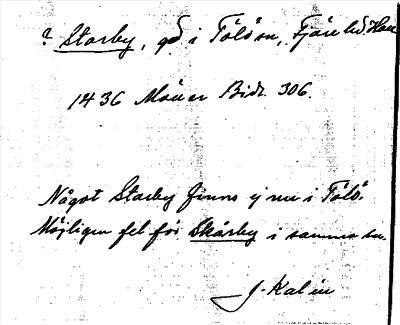 ? Starby, gd i Tölö sn, Fjäre hd Hall
1436 Mäner Bidr. 306.
Något Starby finns ej nu i Tölö.
Möjligen fel för Skårby i samma sn.
J. Kalén